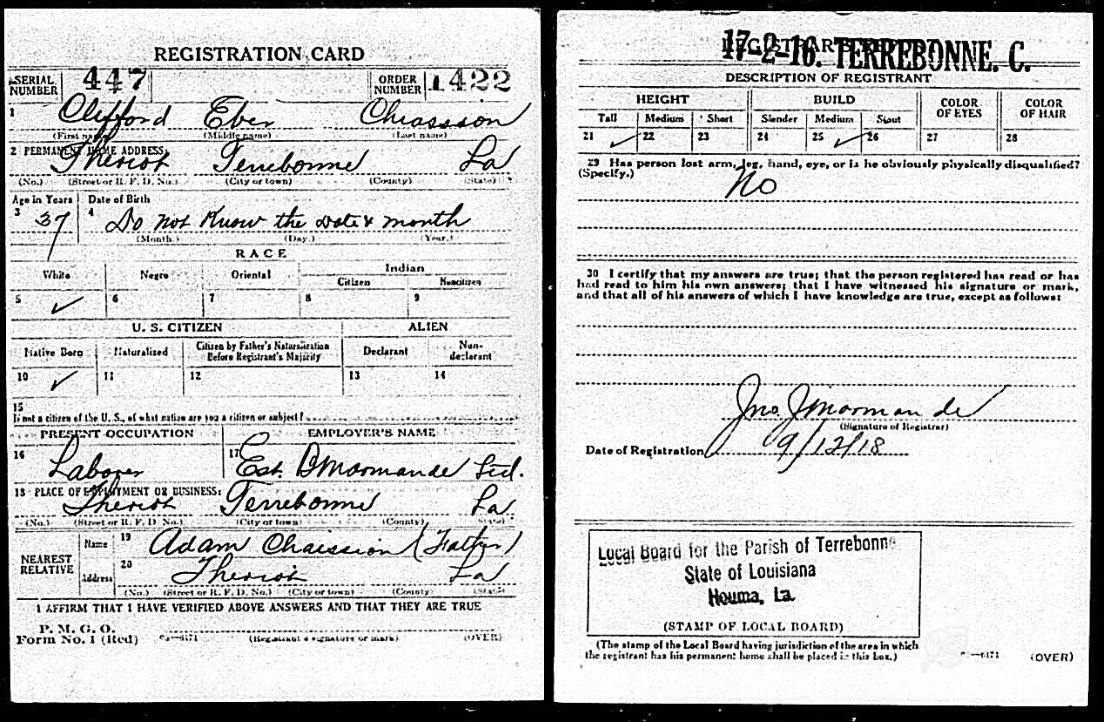 REGISTRATION CARD
SERIAL NUMBER 447 ORDER NUMBER 1422
1 Clifford Eber Chiasson
(First name) (Middle name) (Last name)
2 PERMANENT HOME ADDRESS:
Theriot Terrebonne La
(No.) (Street or R. F. D. No.) (City or town) (County) (State)
Age in Years Date of Birth
3 37 4 Do not Know the date & month
(Month.) (Day.) (Year.)
RACE
White Negro Oriental Indian
Citizen Noncitizen
5 ✓ 6 7 8 9
U. S. CITIZEN ALIEN
Native Born Naturalized Citizen by Father's Naturalization Before Registrant's Majority Declarant Non-declarant
10 ✓ 11 12 13 14
15
If not a citizen of the U. S., of what nation are you a citizen or subject?
PRESENT OCCUPATION EMPLOYER'S NAME
16 Laborer 17 Est. B Marmande Ltd.
18 PLACE OF EMPLOYMENT OR BUSINESS:
Theriot Terrebonne La
(No.) (Street or R. F. D. No.) (City or town) (County) (State)
NEAREST RELATIVE Name 19 Adam Chaission (Father)
Address 20 Theriot La
(No.) (Street or R. F. D. No.) (City or town) (County) (State)
I AFFIRM THAT I HAVE VERIFIED ABOVE ANSWERS AND THAT THEY ARE TRUE
P. M. G. O.
Form No. 1 (Red) (Registrant's signature or mark) (OVER)
17-2-16. TERREBONNE. C.
DESCRIPTION OF REGISTRANT
HEIGHT BUILD COLOR OF EYES COLOR OF HAIR
Tall Medium Short Slender Medium Stout
21 ✓ 22 23 24 25 ✓ 26 27 28
29 Has person lost arm, leg, hand, eye, or is he obviously physically disqualified?
(Specify.) No
30 I certify that my answers are true; that the person registered has read or has
had read to him his own answers; that I have witnessed his signature or mark,
and that all of his answers of which I have knowledge are true, except as follows:
Jno. J Marmande
(Signature of Registrar)
Date of Registration 9/12/18
Local Board for the Parish of Terrebonne
State of Louisiana
Houma, La.
(STAMP OF LOCAL BOARD)
(The stamp of the Local Board having jurisdiction of the area in which
the registrant has his permanent home shall be placed in this box.)
(OVER)